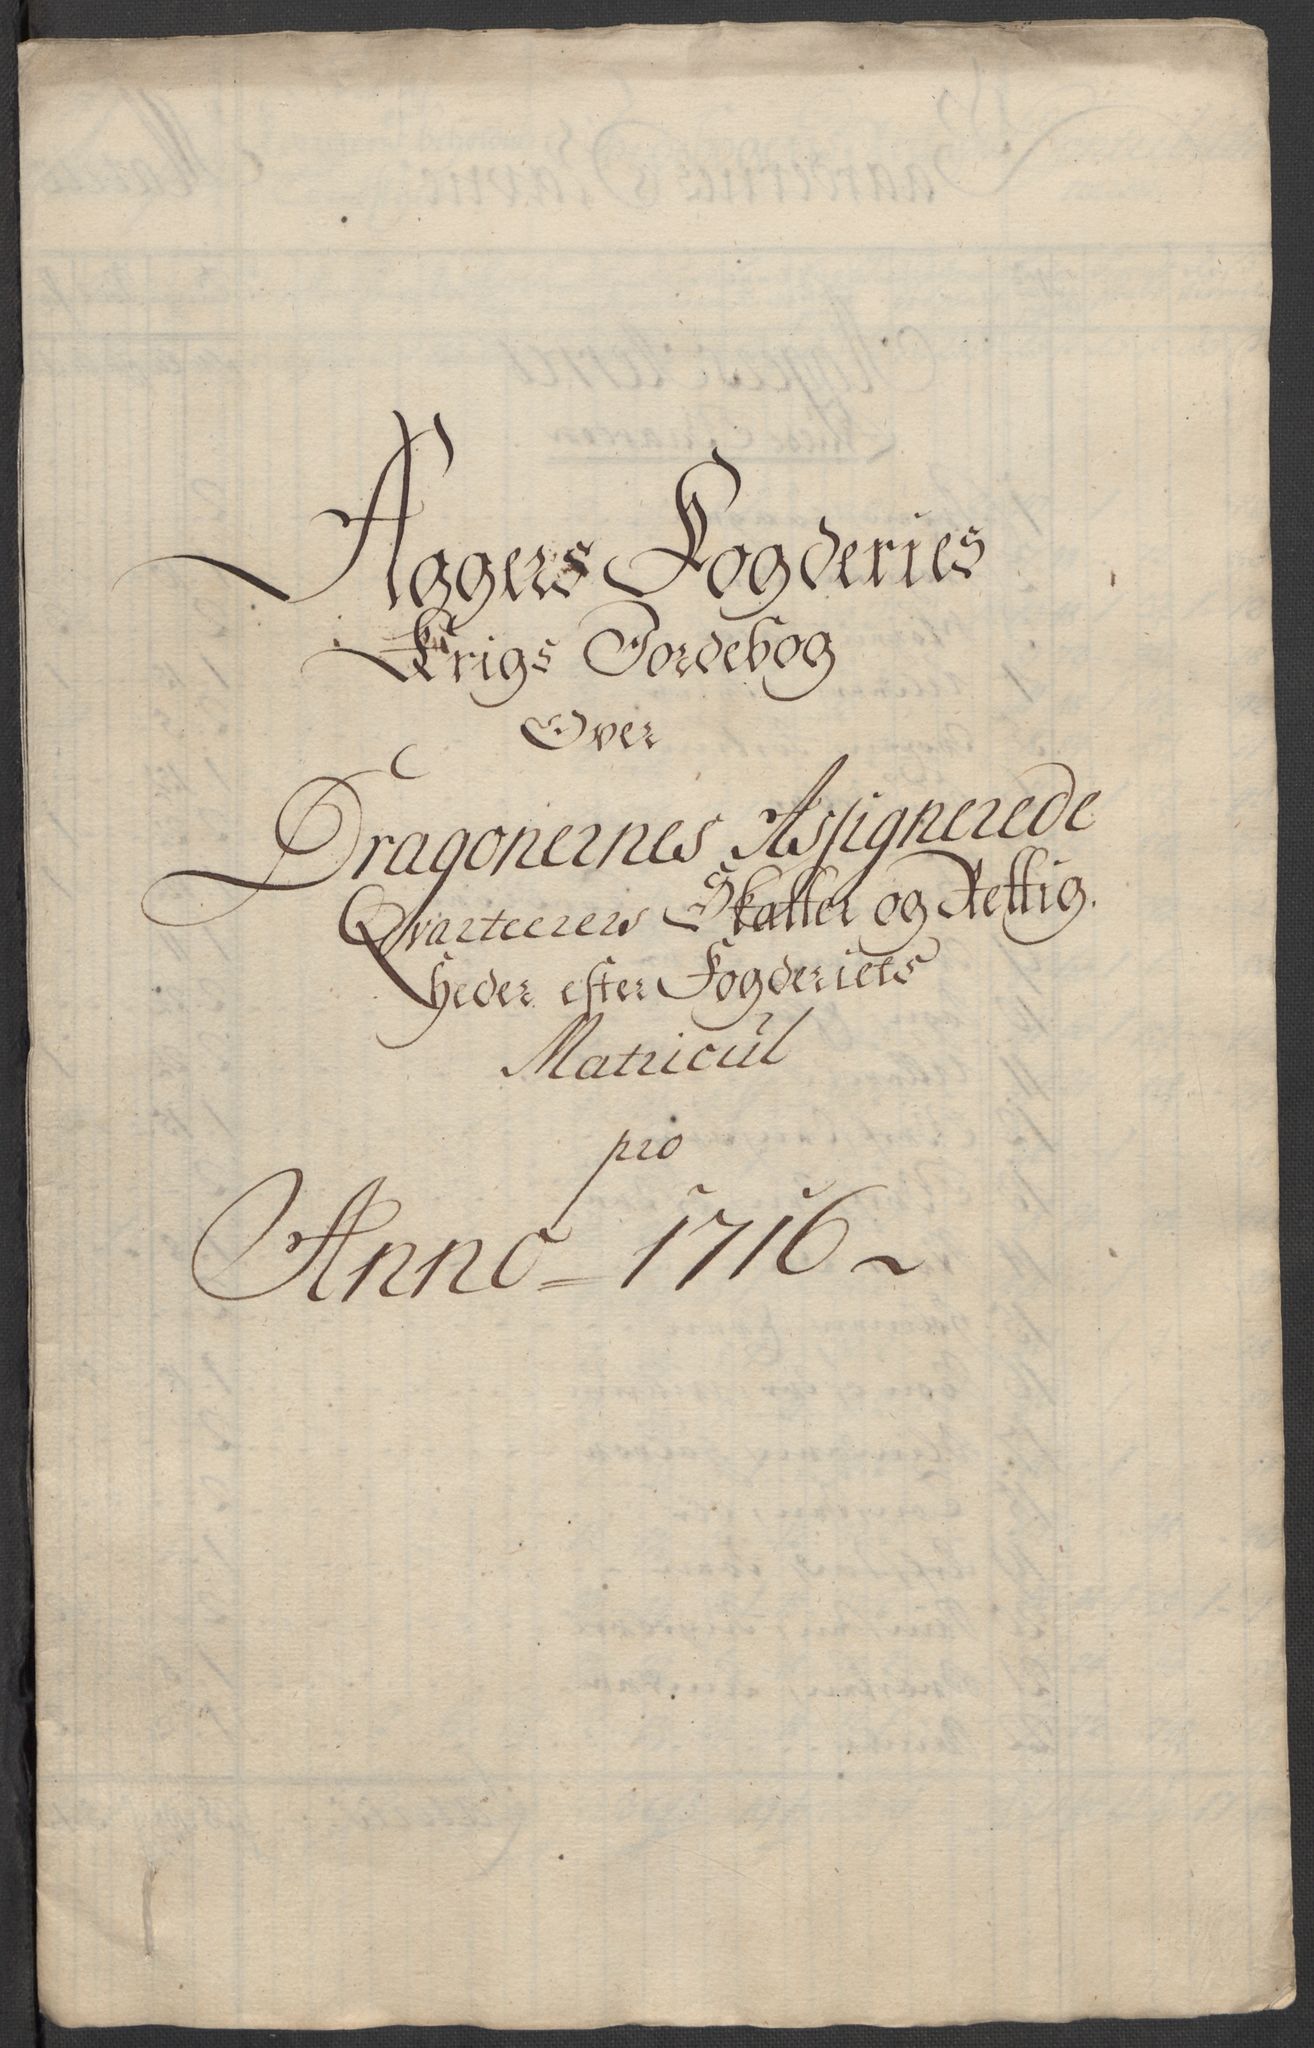 Aggers Fogderies
Krigs Jordebog
Over
Dragonernes Assignerede
Qvarteerers Skatter og Rettig.
heder efter Fogderiets
Matricul
pro
Anno = 1716